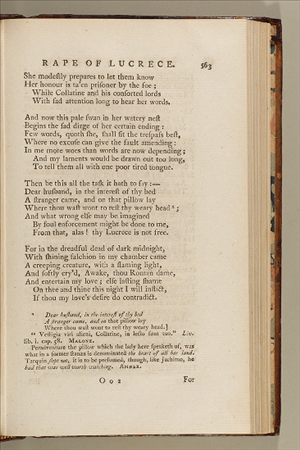 RAPE OF LUCRECE. 563
She modestly prepares to let them know
Her honour is ta'en prisoner by the foe;
While Collatine and his consorted lords
With sad attention long to hear her words.
And now this pale swan in her watery nest
Begins the sad dirge of her certain ending:
Few words, quoth she, shall fit the trespass best,
Where no excuse can give the fault amending:
In me more woes than words are now depending;
And my laments would be drawn out too long,
To tell them all with one poor tired tongue.
Then be this all the task it hath to say:—
Dear husband, in the interest of thy bed
A stranger came, and on that pillow lay
Where thou wast wont to rest thy weary head;
And what wrong else may be imagined
By foul enforcement might be done to me,
From that, alas! thy Lucrece is not free.
For in the dreadful dead of dark midnight,
With shining falchion in my chamber came
A creeping creature, with a flaming light,
And softly cry'd, Awake, thou Roman dame,
And entertain my love; else lasting shame
On thee and thine this night I will inflict,
If thou my love's desire do contradict.
Dear husband, in the interest of thy bed
A stranger came, and on that pillow lay
Where thou wast wont to rest thy weary head;]
"Vestigia viri alieni, Collatine, in lecto sunt tuo." Liv.
lib. i. cap. 58. MALONE.
the pillow which the lady here speaketh of, was
what in a former stanza is denominated the heart of all her land.
Tarquin slept not, it is to be presumed, though, like Jachimo, he
had that was well worth watching.
O o 2 For